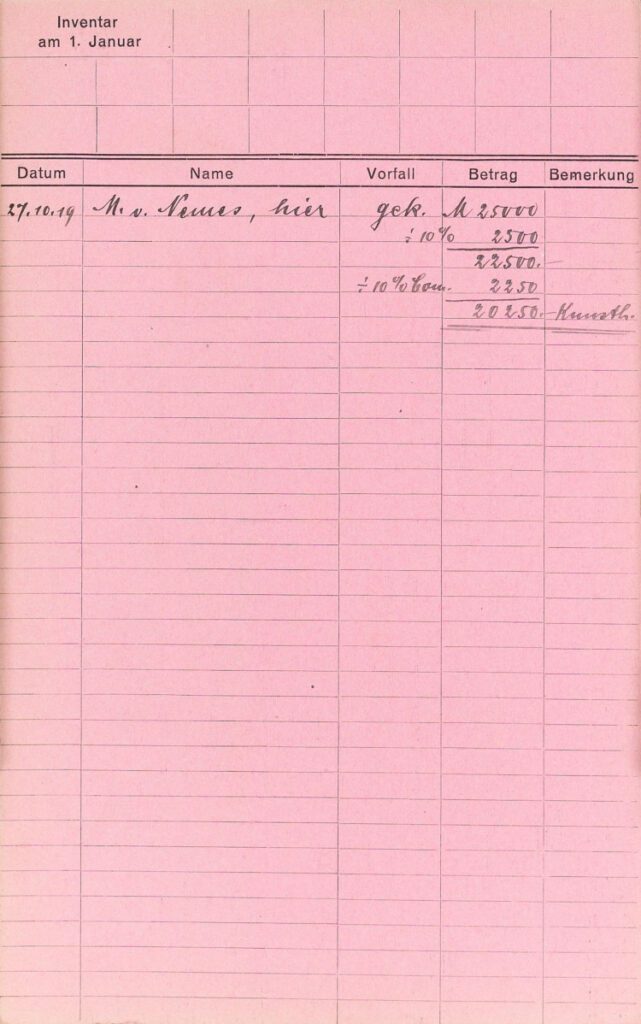 Inventar
am 1. Januar
Datum Name Vorfall Betrag Bemerkung
27.10.19 M. v. Nemes, hier gek. M 25000
÷ 10% 2500
22500.-
÷ 10% Com. 2250
20250.- Kunsth.